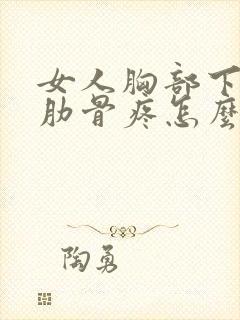 女人胸部下
肋骨疼怎麽
陶勇